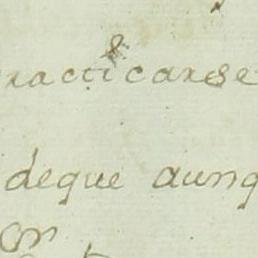 racticarse
deque aunq
on